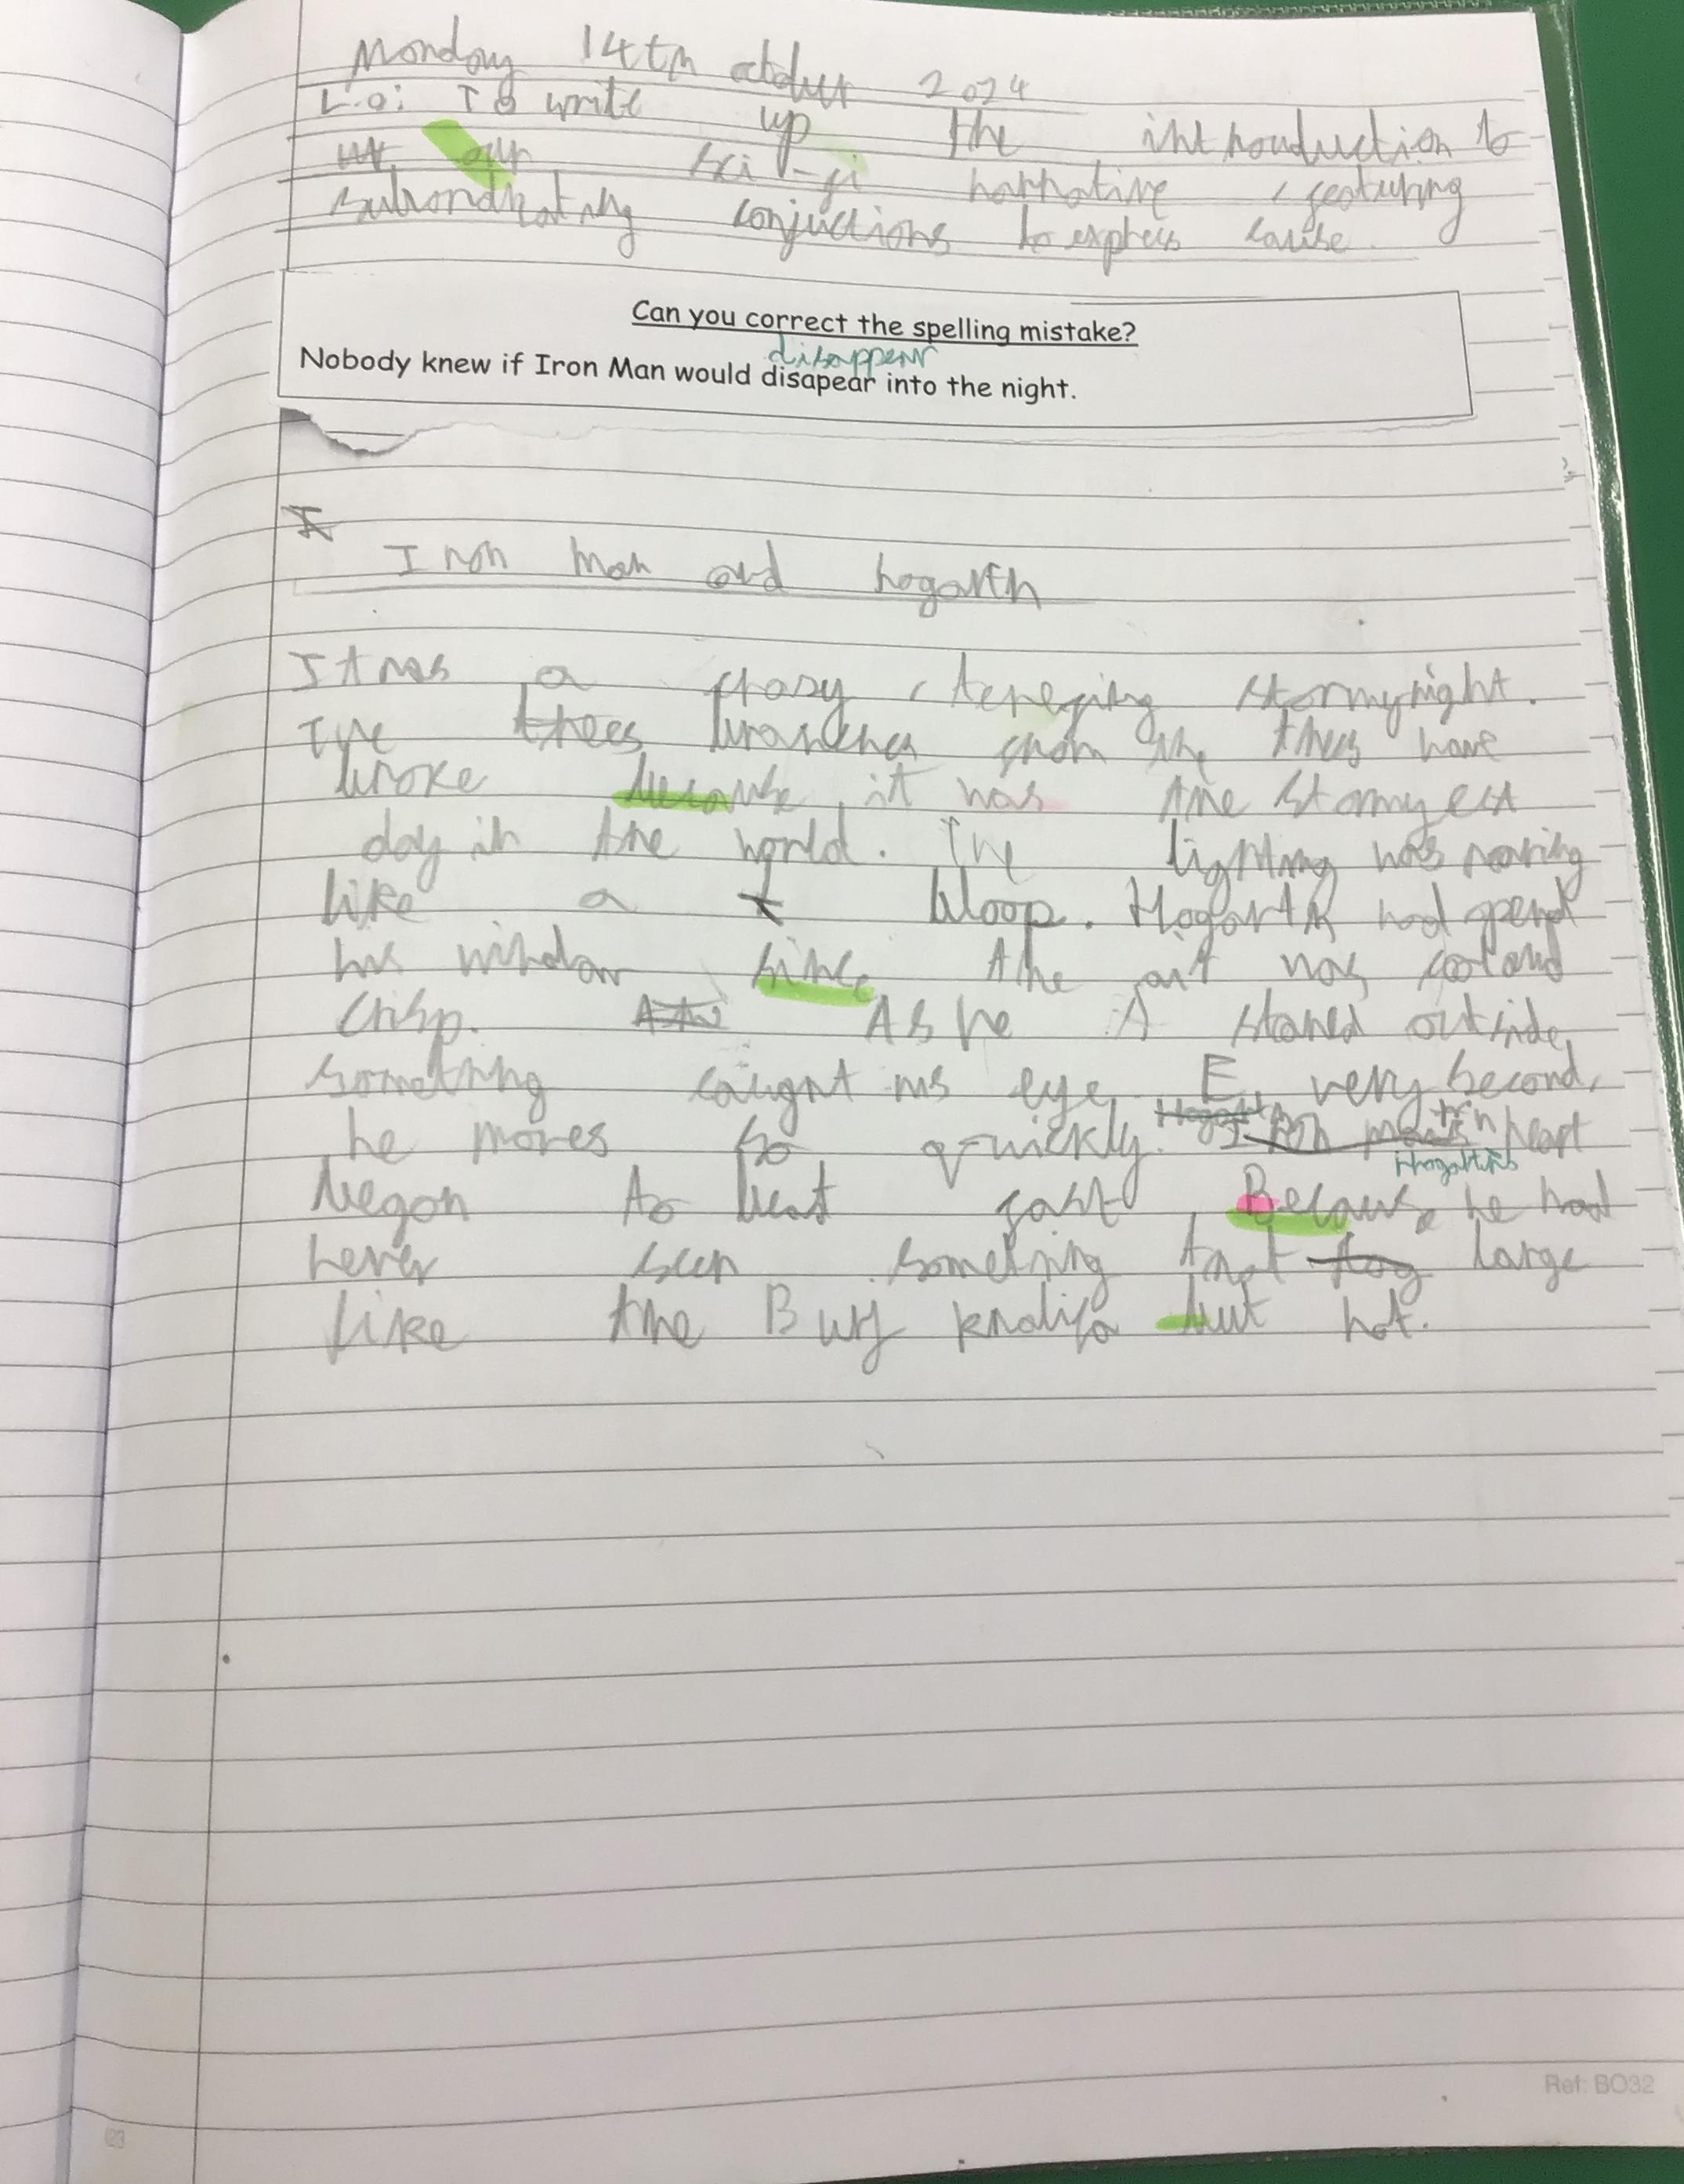 Monday 14th october 2024
L.O: To write up the inthouduction to
our sci-fi narrative, featuring
conjuctions to express cause.
Can you correct the spelling mistake?
disappear
Nobody knew if Iron Man would disapear into the night.
Iron Man and hogarth
It was a stormy night.
The trees branches from the trees have
broke because it was the stormyest
day in the world. The lighting was roaring
like a bloop. Hogarth had opend
his window since the air was cool and
crisp. As he stared outside,
something caught his eye. Every second,
he moves so quickly. heart
Hogarth's
began to beat fast Because he had
never seen something that large
like the Burj but not.
Ref: BO32